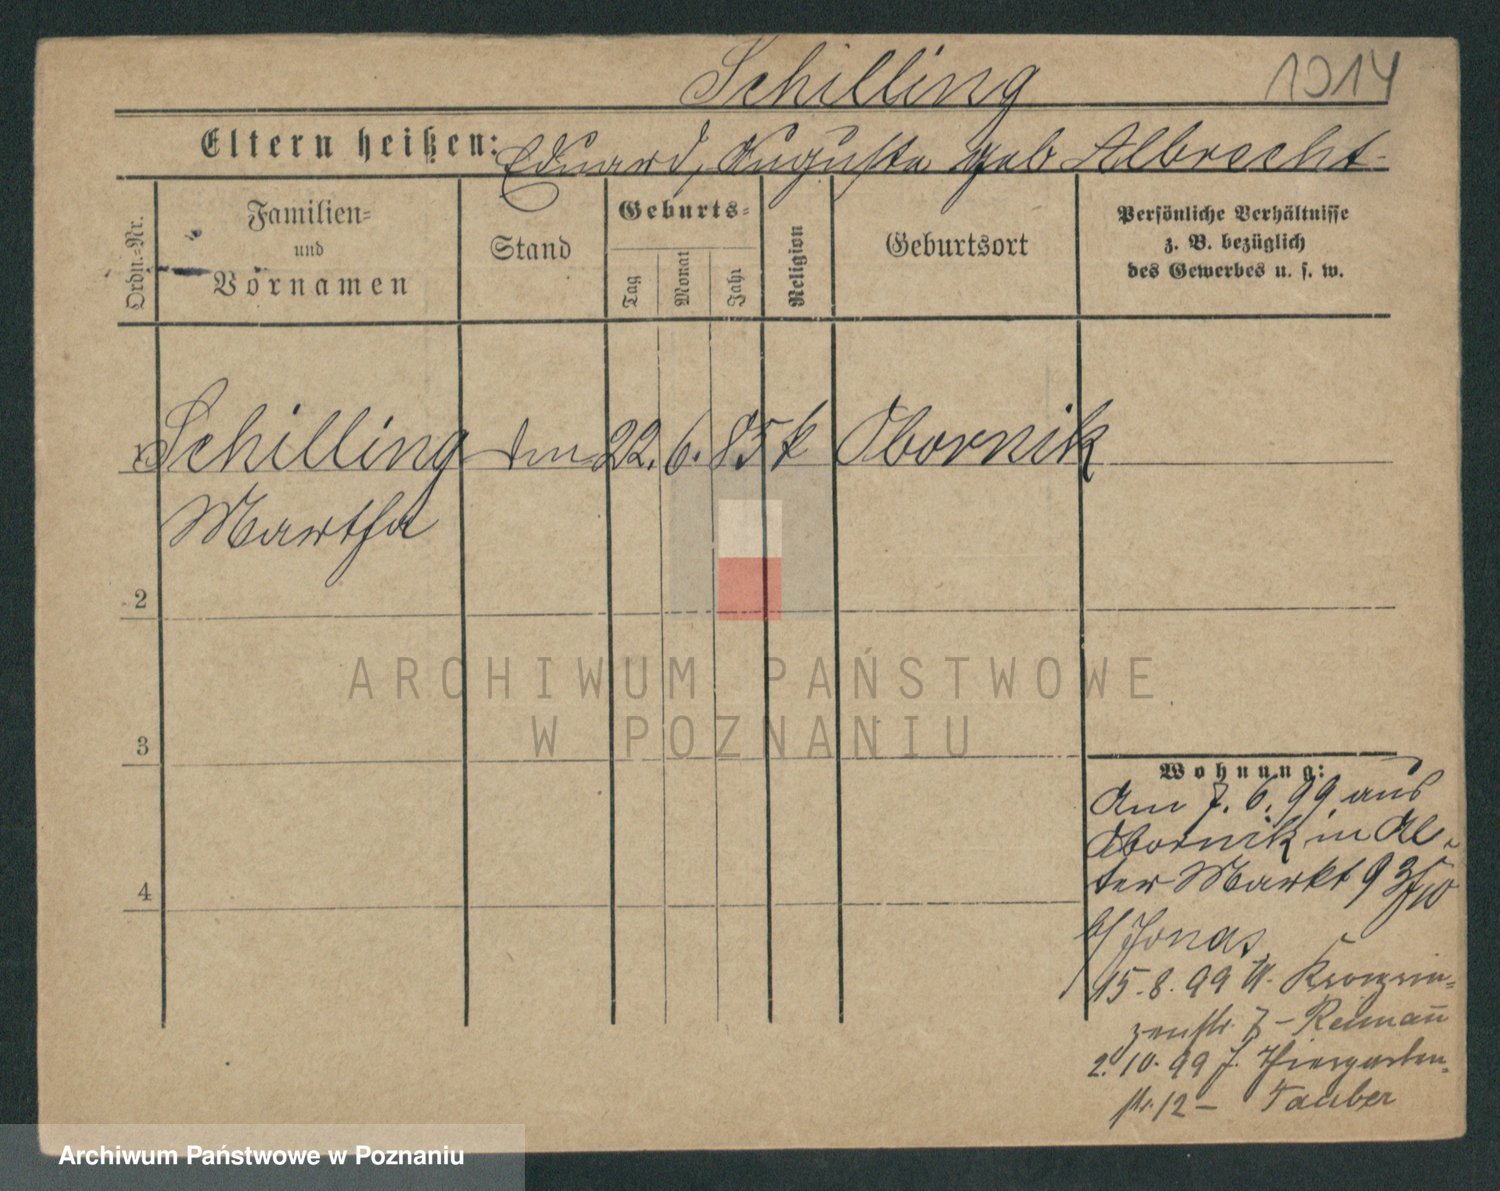 Schilling 1914
Eltern heißen: Eduard, Augusta geb Albrecht
Ordn.-Nr.
Familien-
und
Vornamen
Stand
Geburts-
Tag
Monat
Jahr
Religion
Geburtsort
Persönliche Verhältnisse
z. B. bezüglich
des Gewerbes u. s. w.
1 Schilling 22. 6. 85 k Obornik
Martha
2
3
4
ARCHIWUM PAŃSTWOWE
W POZNANIU
Wohnung:
Am 7. 6. 99 aus
Obornik in Al-
ter Markt 93/10
b/ Jonas
15. 8. 99 U. Kronprin-
zenstr. 7 - Reimañ
2. 10. 99 J. Thiergarten-
str. 12 - Tauber
Archiwum Państwowe w Poznaniu